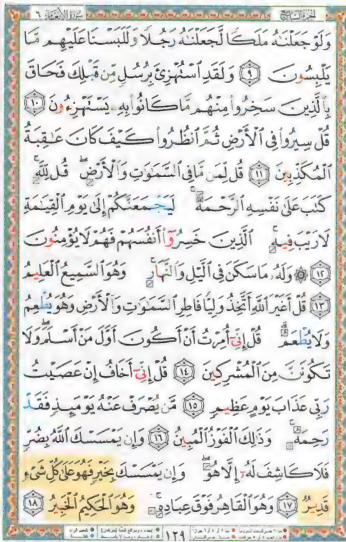 الجزء السابع سورة الأنعام ٦
وَلَوْ جَعَلْنَٰهُ مَلَكًا لَّجَعَلْنَٰهُ رَجُلًا وَلَلَبَسْنَا عَلَيْهِم مَّا
يَلْبِسُونَ ٩ وَلَقَدِ ٱسْتُهْزِئَ بِرُسُلٍ مِّن قَبْلِكَ فَحَاقَ
بِٱلَّذِينَ سَخِرُوا۟ مِنْهُم مَّا كَانُوا۟ بِهِۦ يَسْتَهْزِءُونَ ١٠
قُلْ سِيرُوا۟ فِى ٱلْأَرْضِ ثُمَّ ٱنظُرُوا۟ كَيْفَ كَانَ عَٰقِبَةُ
ٱلْمُكَذِّبِينَ ١١ قُل لِّمَن مَّا فِى ٱلسَّمَٰوَٰتِ وَٱلْأَرْضِ قُل لِّلَّهِ
كَتَبَ عَلَىٰ نَفْسِهِ ٱلرَّحْمَةَ لَيَجْمَعَنَّكُمْ إِلَىٰ يَوْمِ ٱلْقِيَٰمَةِ
لَا رَيْبَ فِيهِ ٱلَّذِينَ خَسِرُوٓا۟ أَنفُسَهُمْ فَهُمْ لَا يُؤْمِنُونَ
١٢ ۞ وَلَهُۥ مَا سَكَنَ فِى ٱلَّيْلِ وَٱلنَّهَارِ وَهُوَ ٱلسَّمِيعُ ٱلْعَلِيمُ
١٣ قُلْ أَغَيْرَ ٱللَّهِ أَتَّخِذُ وَلِيًّا فَاطِرِ ٱلسَّمَٰوَٰتِ وَٱلْأَرْضِ وَهُوَ يُطْعِمُ
وَلَا يُطْعَمُ قُلْ إِنِّىٓ أُمِرْتُ أَنْ أَكُونَ أَوَّلَ مَنْ أَسْلَمَ وَلَا
تَكُونَنَّ مِنَ ٱلْمُشْرِكِينَ ١٤ قُلْ إِنِّىٓ أَخَافُ إِنْ عَصَيْتُ
رَبِّى عَذَابَ يَوْمٍ عَظِيمٍ ١٥ مَّن يُصْرَفْ عَنْهُ يَوْمَئِذٍ فَقَدْ
رَحِمَهُۥ وَذَٰلِكَ ٱلْفَوْزُ ٱلْمُبِينُ ١٦ وَإِن يَمْسَسْكَ ٱللَّهُ بِضُرٍّ
فَلَا كَاشِفَ لَهُۥٓ إِلَّا هُوَ وَإِن يَمْسَسْكَ بِخَيْرٍ فَهُوَ عَلَىٰ كُلِّ شَىْءٍ
قَدِيرٌ ١٧ وَهُوَ ٱلْقَاهِرُ فَوْقَ عِبَادِهِۦ وَهُوَ ٱلْحَكِيمُ ٱلْخَبِيرُ ١٨
١٢٩